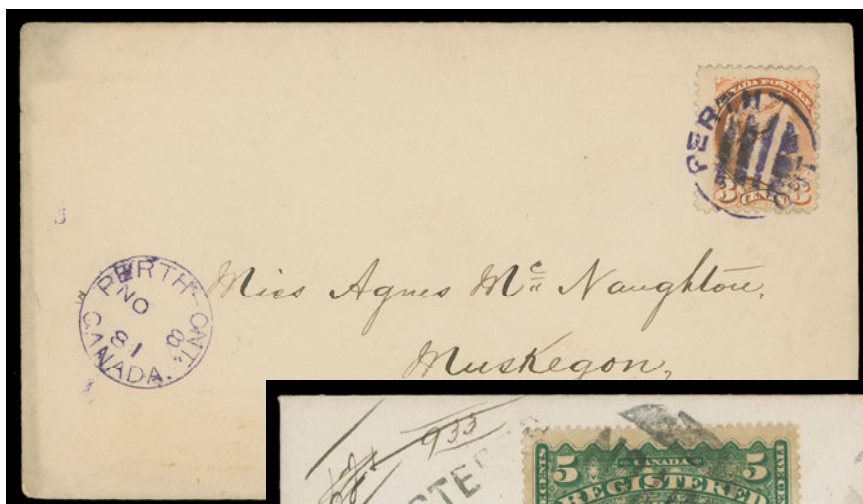 CANADA POSTAGE
PERTH
3 CENTS 3
PERTH ONT.
NO 8
81
CANADA.
Miss Agnes Mc Naughton,
Muskegon,
933
5 CANADA 5
REGISTERED